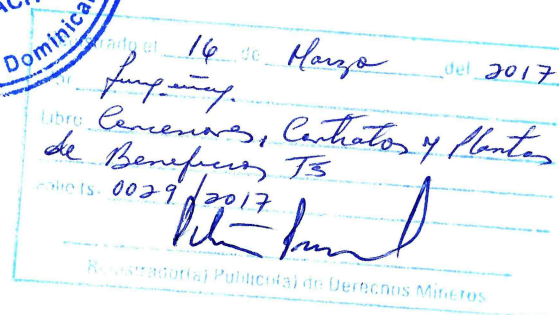 Dominica
Registrado el 16 de Marzo del 2017
Libro Concesiones, Contratos y Plantas
de Beneficios T3
Folio(s) 0029/2017
Registrador(a) Público(a) de Derechos Mineros